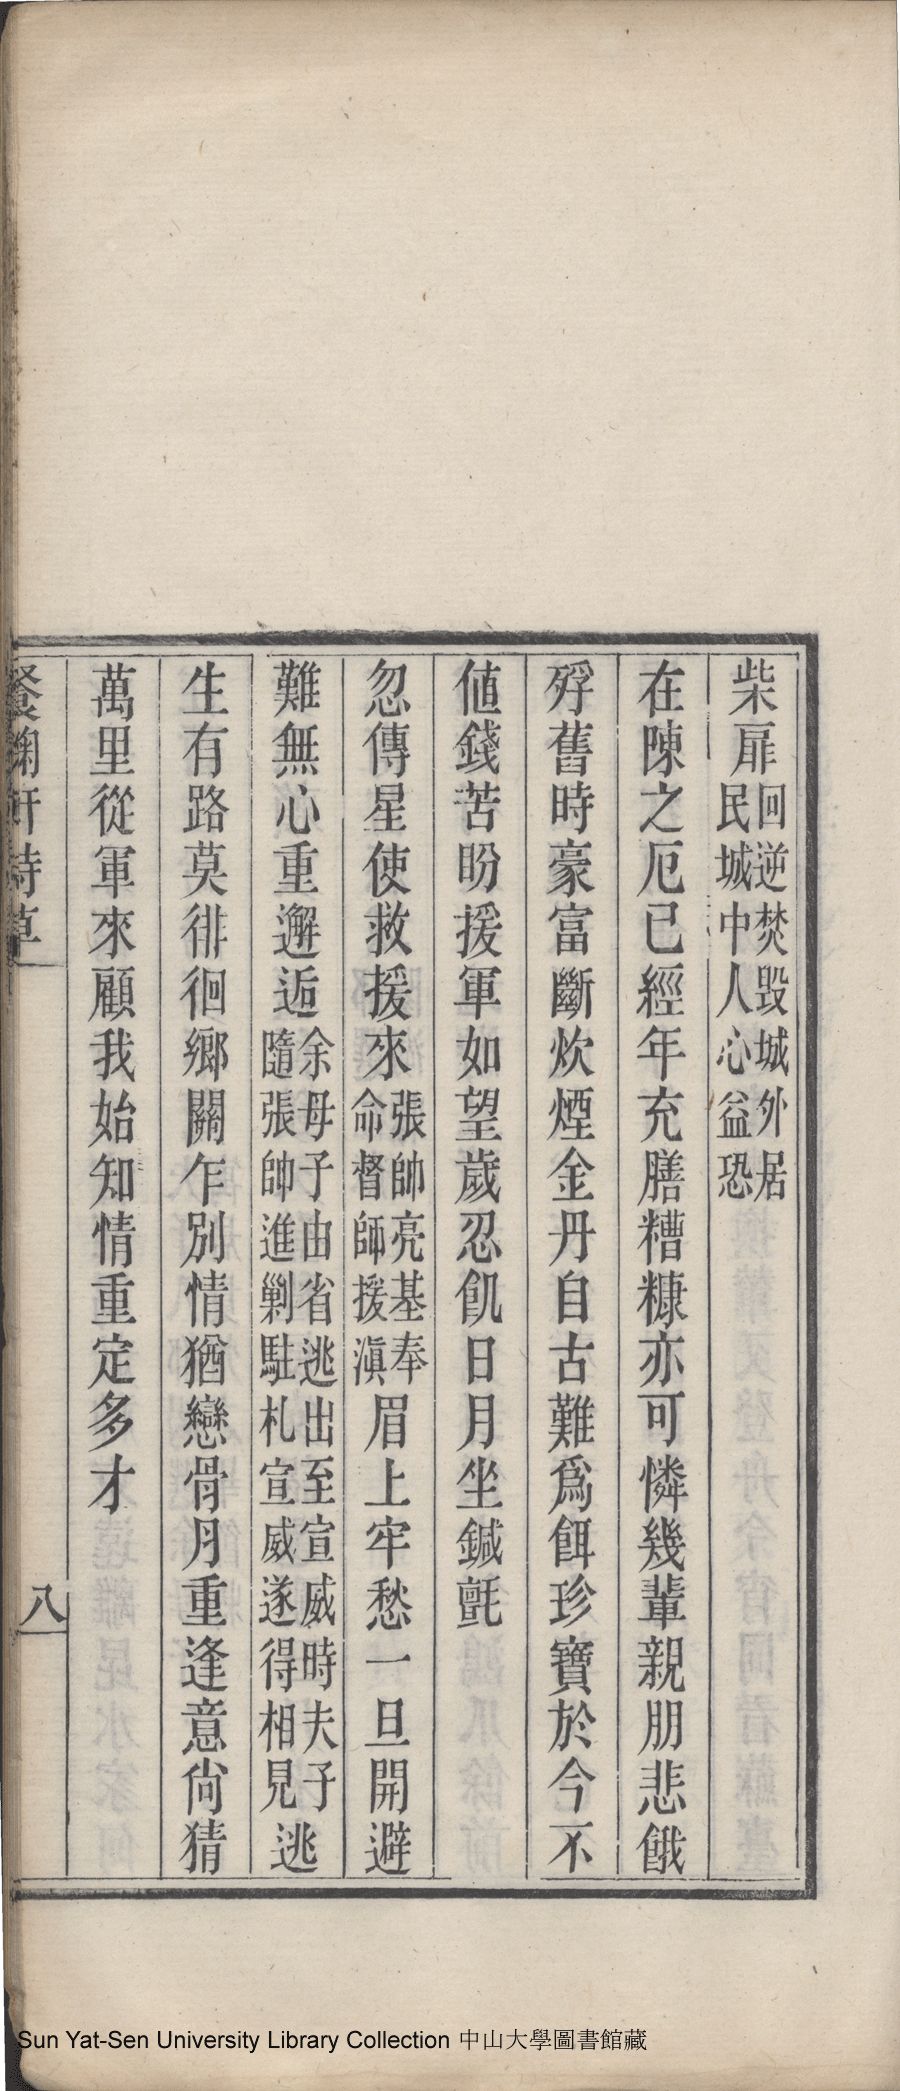 柴扉回逆焚毀城外居民城中人心益恐
在陳之厄已經年充膳糟糠亦可憐幾輩親朋悲餓
殍舊時豪富斷炊煙金丹自古難爲餌珍寶於今不
値錢苦盼援軍如望歲忍飢日月坐鍼氈
忽傳星使救援來張帥亮基奉命督師援滇眉上牢愁一旦開避
難無心重邂逅余母子由省逃出至宣威時夫子隨張帥進剿駐札宣威遂得相見逃
生有路莫徘徊鄉關乍別情猶戀骨月重逢意尙猜
萬里從軍來顧我始知情重定多才
餐菊軒詩草
八
Sun Yat-Sen University Library Collection 中山大學圖書館藏